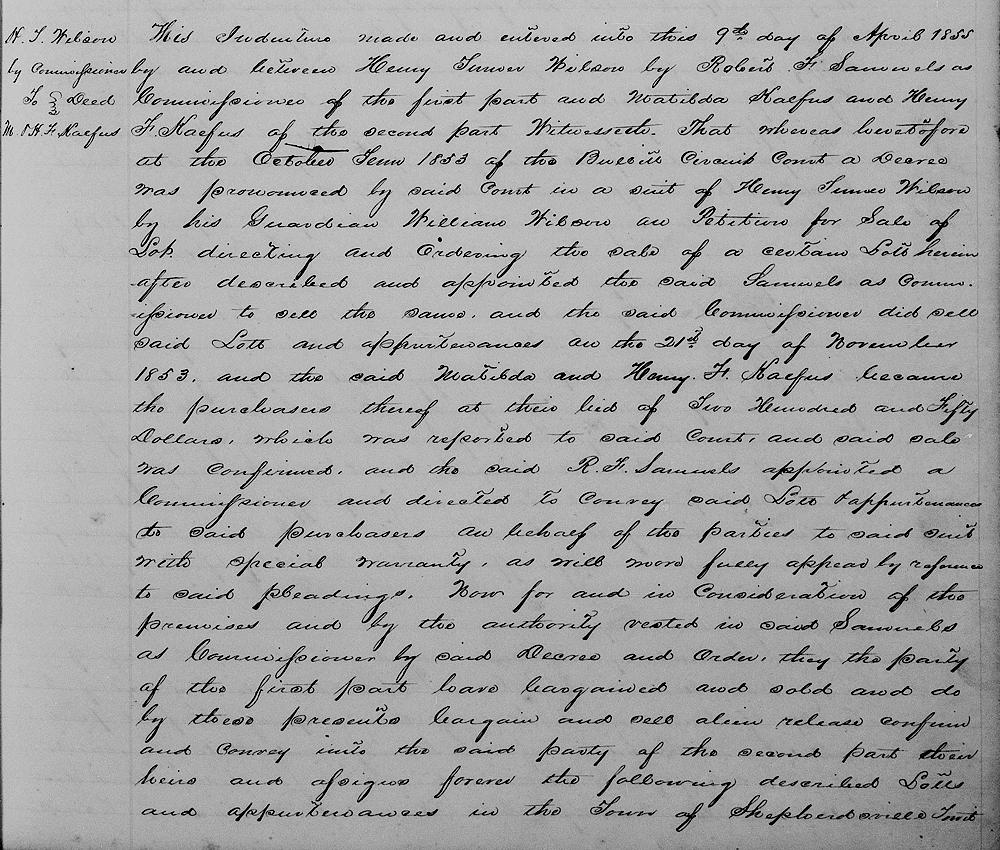 H. T. Wilson
by Commissioner
To } Deed
M. & H. F. Kaefus
This Indenture made and entered into this 9th day of April 1855
by and between Henry Turner Wilson by Robert F. Samuels as
Commissioner of the first part and Matilda Kaefus and Henry
F. Kaefus of the second part Witnesseth. That whereas heretofore
at the October Term 1853 of the Bullitt Circuit Court a Decree
was pronounced by said Court in a suit of Henry Turner Wilson
by his Guardian William Wilson on Petition for Sale of
Lot directing and Ordering the sale of a certain Lott herein
after described and appointed the said Samuels as Comm-
issioner to sell the same. and the said Commissioner did sell
said Lott and appurtenances on the 21st day of November
1853. and the said Matilda and Henry. F. Kaefus became
the purchasers thereof at their bid of Two Hundred and Fifty
Dollars, which was reported to said Court, and said sale
was confirmed. and the said R. F. Samuels appointed a
Commissioner and directed to convey said Lott & appurtenances
to said purchasers on behalf of the parties to said suit
with special warranty, as will more fully appear by reference
to said pleadings. Now for and in Consideration of the
premises and by the authority vested in said Samuels
as Commissioner by said Decree and Order, they the party
of the first part have bargained and sold and do
by these presents bargain and sell alien release confirm
and convey unto the said party of the second part their
heirs and assigns forever the following described Lotts
and appurtenances in the Town of Shepherdsville